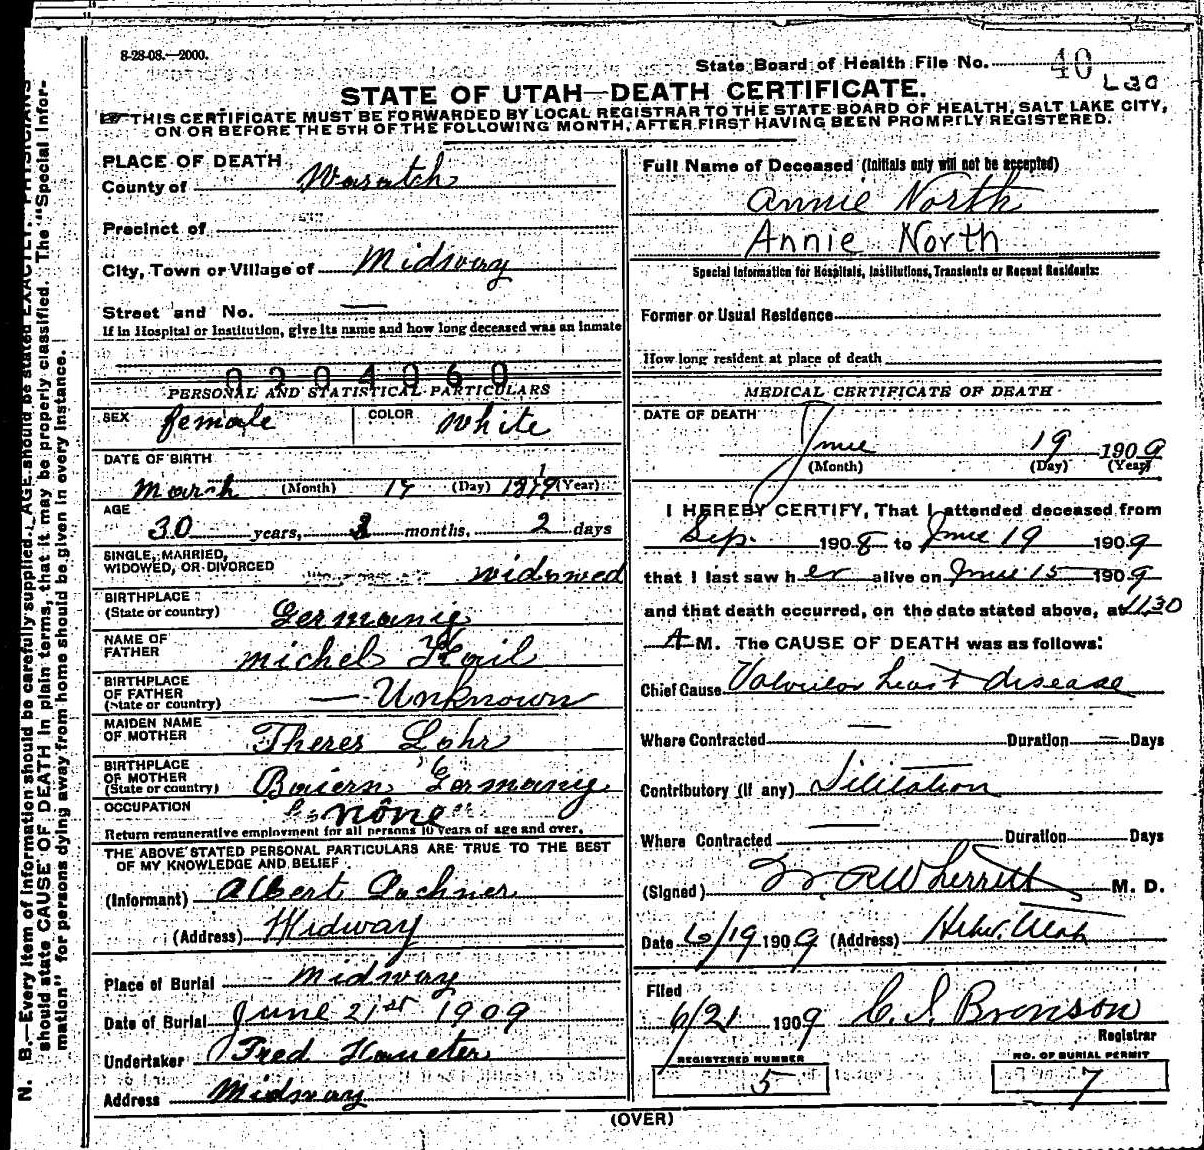 8-28-08.—2000.
State Board of Health File No. 40
L30
STATE OF UTAH—DEATH CERTIFICATE.
THIS CERTIFICATE MUST BE FORWARDED BY LOCAL REGISTRAR TO THE STATE BOARD OF HEALTH, SALT LAKE CITY,
ON OR BEFORE THE 5TH OF THE FOLLOWING MONTH, AFTER FIRST HAVING BEEN PROMPTLY REGISTERED.
PLACE OF DEATH
County of Wasatch
Precinct of
City, Town or Village of Midway
Street and No. —
If in Hospital or Institution, give its name and how long deceased was an inmate
0204060
PERSONAL AND STATISTICAL PARTICULARS
SEX female COLOR White
DATE OF BIRTH
March (Month) 17 (Day) 1879 (Year)
AGE
30 years, 3 months, 2 days
SINGLE, MARRIED,
WIDOWED, OR DIVORCED widowed
BIRTHPLACE
(State or country) Germanig
NAME OF
FATHER michel Kail
BIRTHPLACE
OF FATHER
(State or country) — Unknown
MAIDEN NAME
OF MOTHER Theres Lohr
BIRTHPLACE
OF MOTHER
(State or country) Baiern Germany
OCCUPATION none
Return remunerative employment for all persons 10 years of age and over.
THE ABOVE STATED PERSONAL PARTICULARS ARE TRUE TO THE BEST
OF MY KNOWLEDGE AND BELIEF
(Informant) Albert Lachner
(Address) Midway
Place of Burial Midway
Date of Burial June 21st 1909
Undertaker Fred Hameter
Address Midway
Full Name of Deceased (Initials only will not be accepted)
Annie North
Annie North
Special Information for Hospitals, Institutions, Transients or Recent Residents:
Former or Usual Residence
How long resident at place of death
MEDICAL CERTIFICATE OF DEATH
DATE OF DEATH
June 19 1909
(Month) (Day) (Year)
I HEREBY CERTIFY, That I attended deceased from
Sep. 1908 to June 19 1909
that I last saw her alive on June 15 1909
and that death occurred, on the date stated above, at 11.30
A M. The CAUSE OF DEATH was as follows:
Chief Cause Valvular heart disease
Where Contracted — Duration — Days
Contributory (if any) Dilitation
Where Contracted — Duration Days
(Signed) W R Wherritt M. D.
Date 6/19 1909 (Address) Heber, Utah
Filed
6/21 1909 C. I. Bronson
Registrar
REGISTERED NUMBER
5
NO. OF BURIAL PERMIT
7
(OVER)
N. B.—Every item of information should be carefully supplied. AGE should be stated EXACTLY. PHYSICIANS
should state CAUSE OF DEATH in plain terms, that it may be properly classified. The "Special Infor-
mation" for persons dying away from home should be given in every instance.